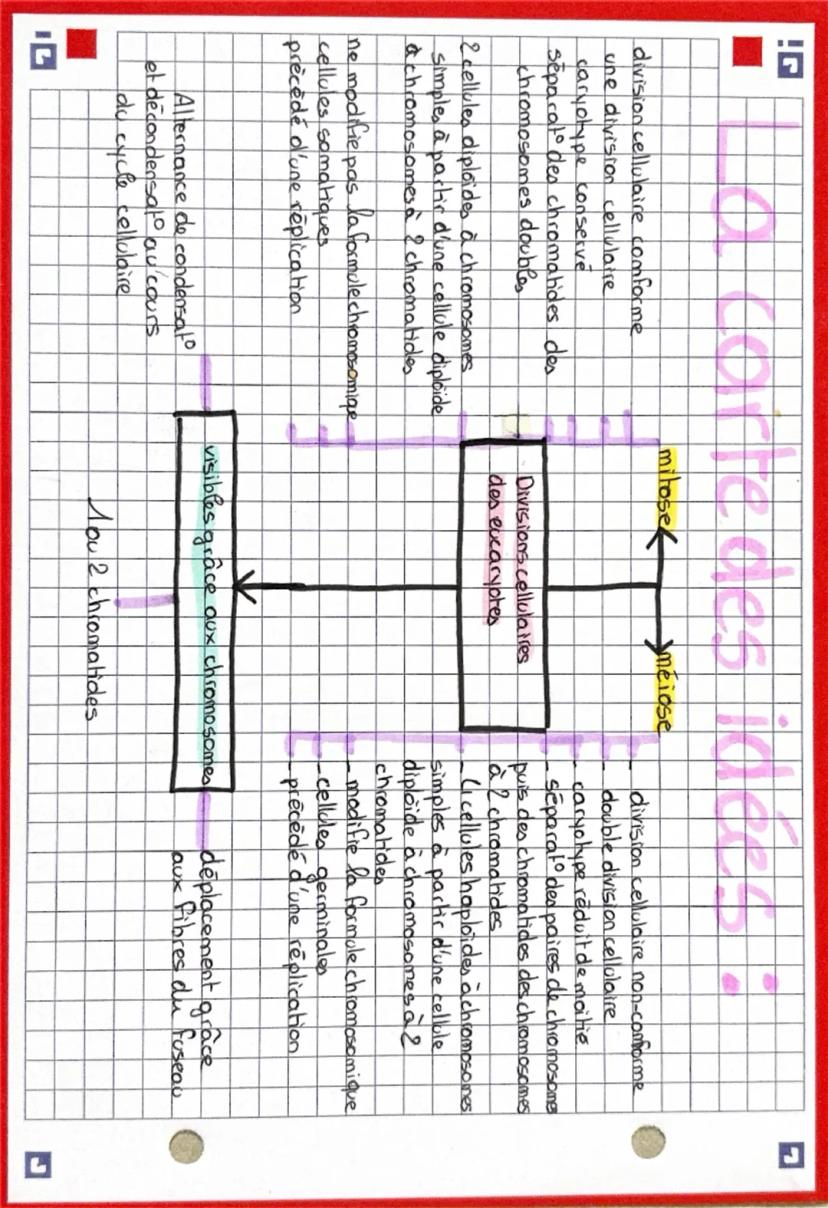 La carte des idées :
mitose
méiose
division cellulaire conforme
une division cellulaire
caryotype conservé
séparat° des chromatides des
chromosomes doubles
2 cellules diploïdes à chromosomes
simples à partir d'une cellule diploïde
à chromosomes à 2 chromatides
ne modifie pas la formule chromosomique
cellules somatiques
précédé d'une réplication
Divisions cellulaires
des eucaryotes
- division cellulaire non-conforme
- double division cellulaire
- caryotype réduit de moitié
- séparat° des paires de chromosome
puis des chromatides des chromosomes
à 2 chromatides
- 4 cellules haploïdes à chromosomes
simples à partir d'une cellule
diploïde à chromosomes à 2
chromatides
- modifie la formule chromosomique
- cellules germinales
- précédé d'une réplication
Alternance de condensat°
et décondensat° au cours
du cycle cellulaire
visibles grâce aux chromosomes
déplacement grâce
aux fibres du fuseau
1 ou 2 chromatides